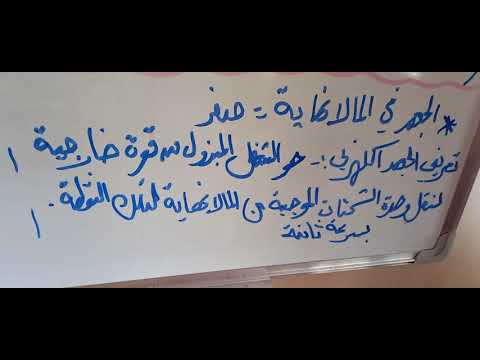 * الجهد في المالانهاية = صفر
تعريف الجهد الكهربي :- هو الشغل المبذول من قوة خارجية
لنقل وحدة الشحنات الموجبة من المالانهاية لتلك النقطة .
بسرعة ثابتة